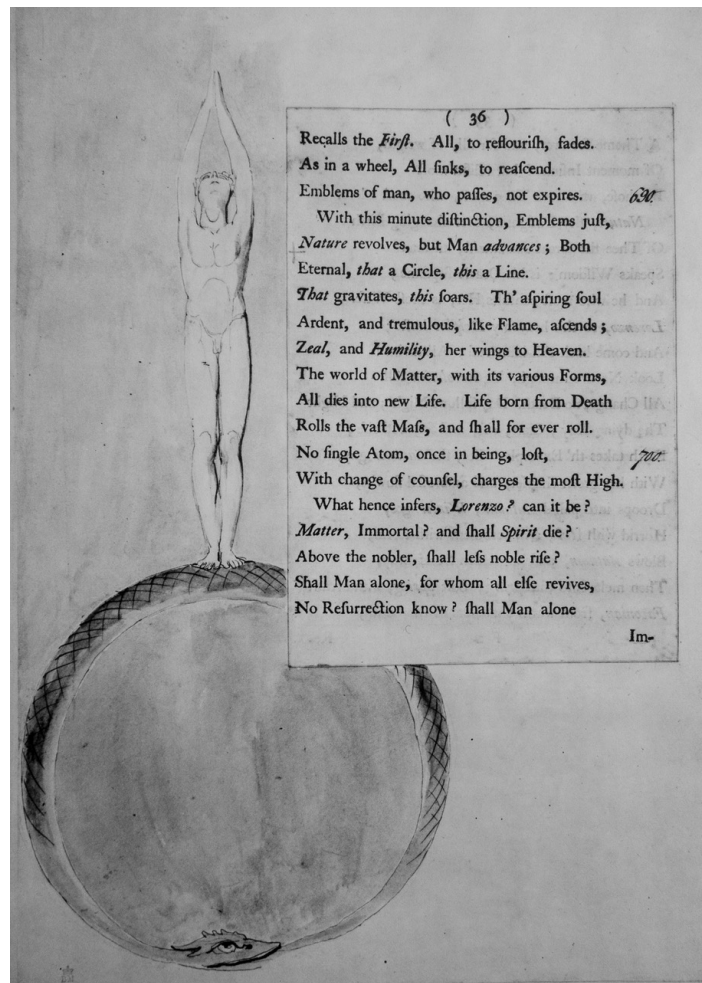 ( 36 )
Recalls the Firſt. All, to reflouriſh, fades.
As in a wheel, All ſinks, to reaſcend.
Emblems of man, who paſſes, not expires. 690.
With this minute diſtinction, Emblems juſt,
Nature revolves, but Man advances; Both
Eternal, that a Circle, this a Line.
That gravitates, this ſoars. Th' aſpiring ſoul
Ardent, and tremulous, like Flame, aſcends;
Zeal, and Humility, her wings to Heaven.
The world of Matter, with its various Forms,
All dies into new Life. Life born from Death
Rolls the vaſt Maſs, and ſhall for ever roll.
No ſingle Atom, once in being, loſt, 700.
With change of counſel, charges the moſt High.
What hence infers, Lorenzo? can it be?
Matter, Immortal? and ſhall Spirit die?
Above the nobler, ſhall leſs noble riſe?
Shall Man alone, for whom all elſe revives,
No Reſurrection know? ſhall Man alone
Im-